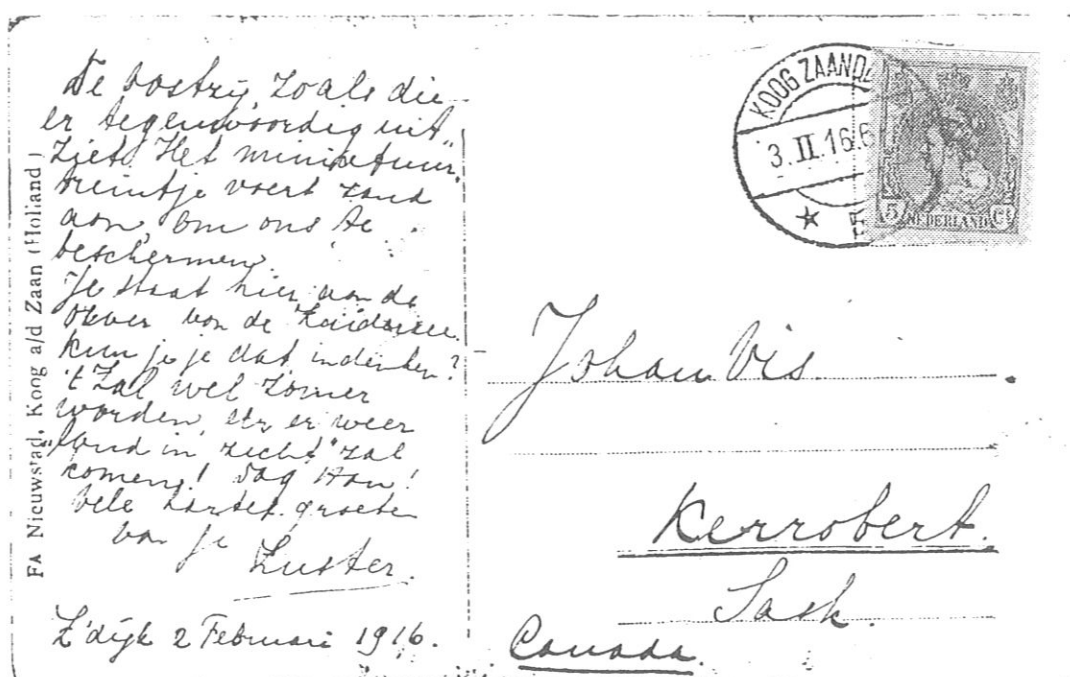 De Oostzij, zoals die
er tegenwoordig uit
ziet. Het miniatuur
treintje voert zand
aan, om ons te
beschermen.
Je staat hier aan de
oever van de Zuiderzee
kun je je dat indenken?
't Zal wel zomer
worden, eer er weer
"land in zicht" zal
komen! Dag Han!
Vele hartel. groeten
van je
Zuster.
Z'dijk 2 Februari 1916.
FA Nieuwstad, Koog a/d Zaan (Holland)
KOOG ZAAND
3.II.16.6
5 NEDERLAND Ct
Johan Vis
Kerrobert.
Sask.
Canada.